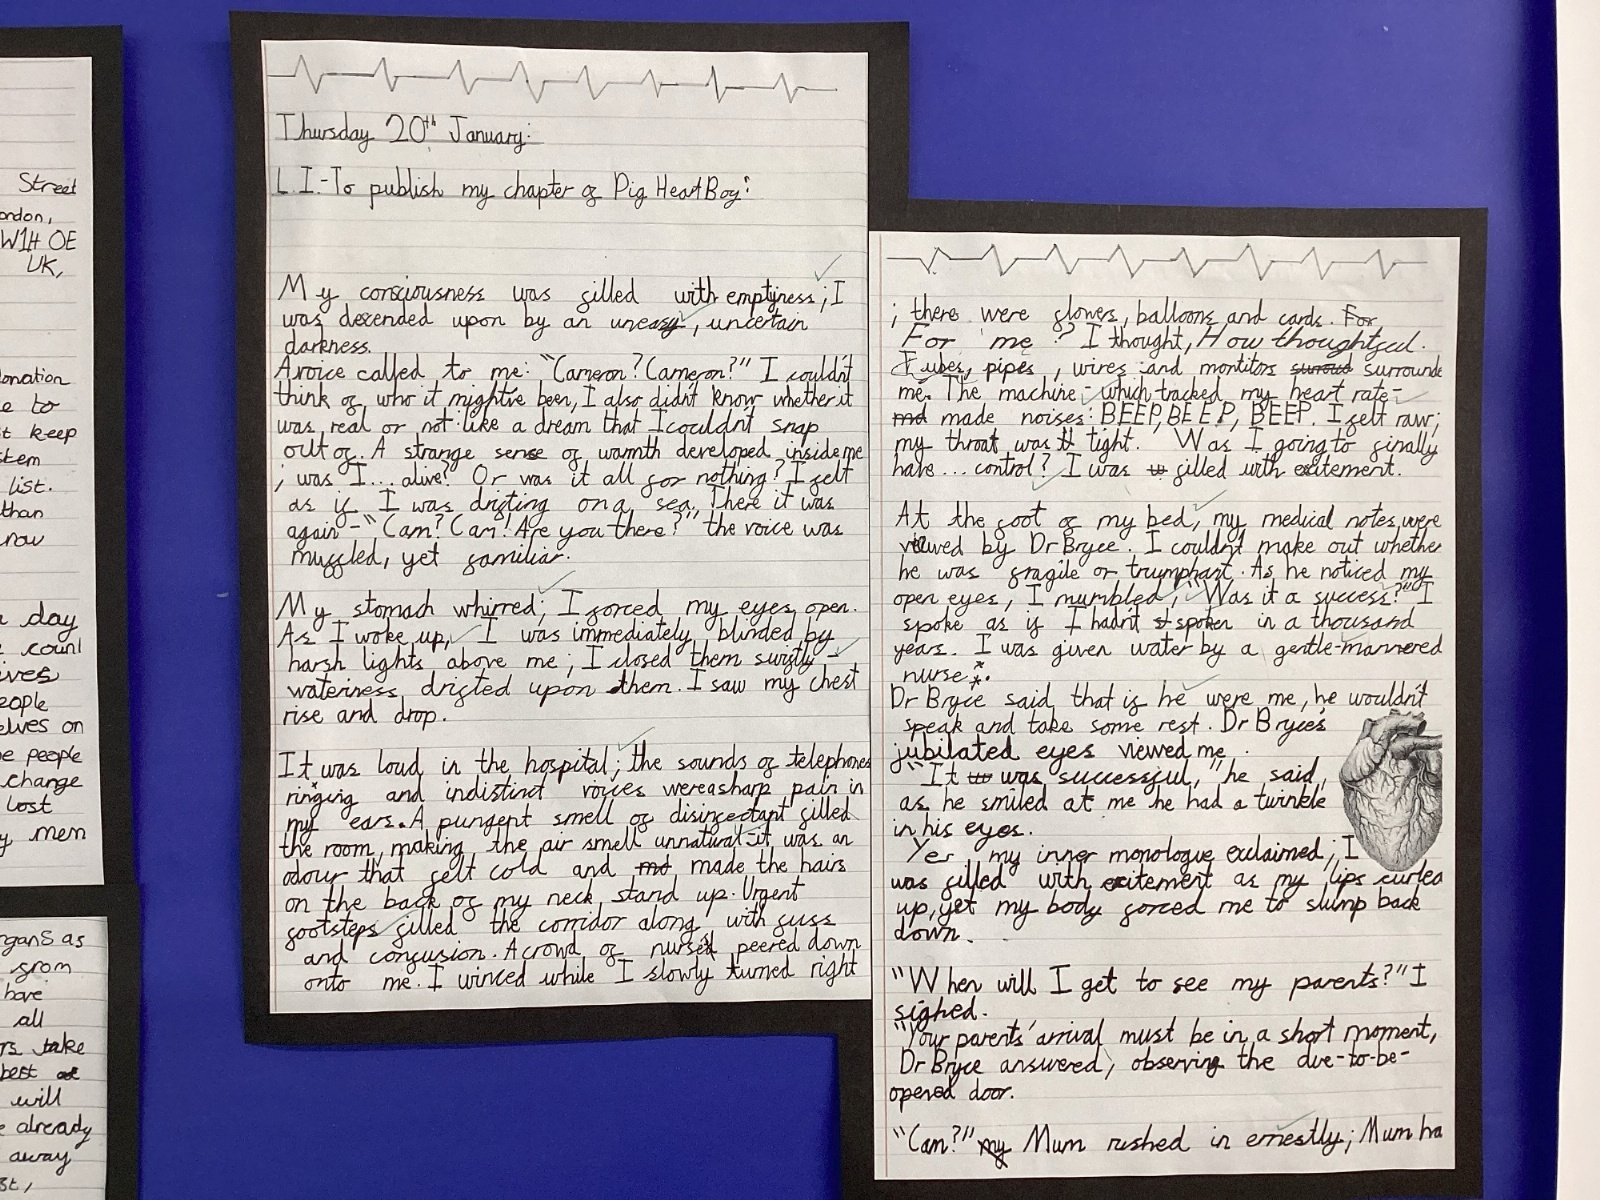 Street
ondon,
W1H OE
UK,
donation
e to
st keep
stem
list.
than
now
day
count
ives
eople
elves on
e people
change
lost
y men
rganS as
from
have
all
rs take
best
will
e already
away
st,
Thursday 20th January:
L.I.-To publish my chapter of Pig HeartBoy:
My consciousness was filled with emptyness; I
was decended upon by an uneasy, uncertain
darkness.
A voice called to me: "Cameron? Cameron?" I couldn't
think of who it might've been, I also didn't know whether it
was real or not-like a dream that I couldn't snap
out of. A strange sense of warmth developed inside me
; was I... alive? Or was it all for nothing? I felt
as if I was drifting on a sea. There it was
again-"Cam? Cam? Are you there?" the voice was
muffled, yet familiar.
My stomach whirred; I forced my eyes open.
As I woke up, I was immediately blinded by
harsh lights above me; I closed them swiftly-
wateriness drifted upon them. I saw my chest
rise and drop.
It was loud in the hospital; the sounds of telephones
ringing and indistinct voices were a sharp pain in
my ears. A pungent smell of disinfectant filled
the room, making the air smell unnatural-it was an
odour that felt cold and made the hairs
on the back of my neck stand up. Urgent
footsteps filled the corridor along with fuss
and confusion. A crowd of nurses peered down
onto me. I winced while I slowly turned right
; there were flowers, balloons and cards. For
For me? I thought, How thoughtful.
Tubes, pipes, wires and montitors surround surrounde
me. The machine-which tracked my heart rate-
made noises: BEEP, BEEP, BEEP. I felt raw;
my throat was tight. Was I going to finally
have... control? I was filled with excitement.
At the foot of my bed, my medical notes were
viewed by Dr Bryce. I couldn't make out whether
he was fragile or triumphant. As he noticed my
open eyes, I mumbled, "Was it a success?" I
spoke as if I hadn't spoken in a thousand
years. I was given water by a gentle-mannered
nurse*.
Dr Bryce said that if he were me, he wouldn't
speak and take some rest. Dr Bryce's
jubilated eyes viewed me.
"It was successful," he said,
as he smiled at me he had a twinkle
in his eyes.
Yes. my inner monologue exclaimed; I
was filled with excitement as my lips curled
up, yet my body forced me to slump back
down.
"When will I get to see my parents?" I
sighed.
"Your parents' arrival must be in a short moment,
Dr Bryce answered, observing the due-to-be-
opened door.
"Cam?" my Mum rushed in ernestly; Mum ha